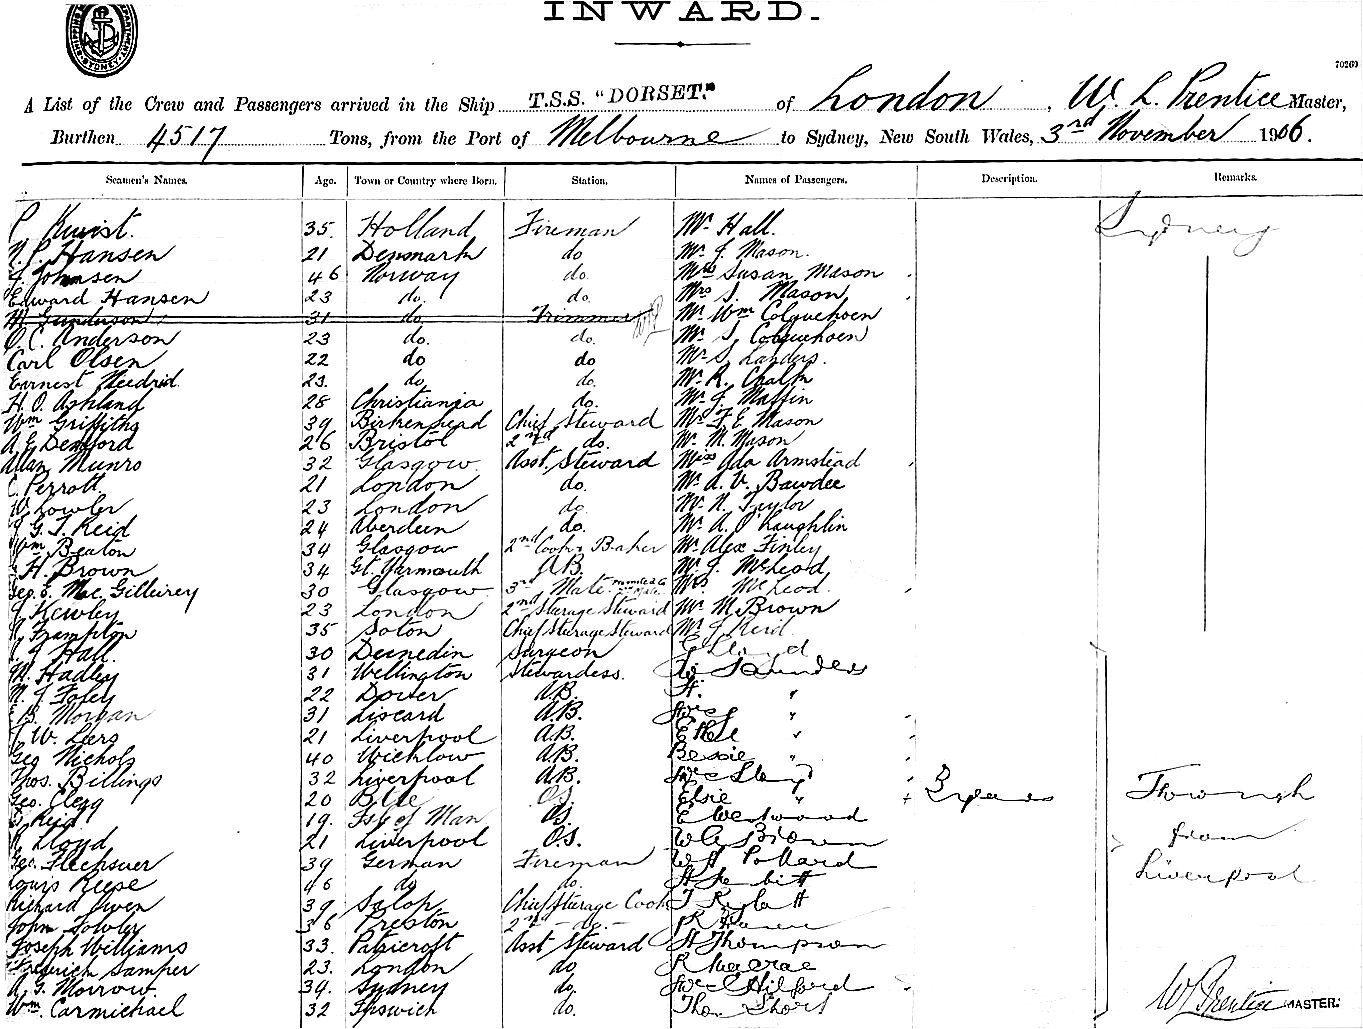 INWARD.
SHIPPING DEPARTMENT SYDNEY
70269
A List of the Crew and Passengers arrived in the Ship T.S.S. "DORSET." of London, W. L. Prentice Master,
Burthen 4517 Tons, from the Port of Melbourne to Sydney, New South Wales, 3rd November 1906.
Seamen's Names. Age. Town or Country where Born. Station. Names of Passengers. Description. Remarks.
Kwist. 35. Holland Fireman Mr Hall. Sydney
N. P. Hansen 21 Denmark do Mr J. Mason.
J. Johnsen 46 Norway do. Mrs Susan Mason
Edward Hansen 23 do. do. Mrs S. Mason
M. Gunderson 31 do. Trimmer Mr Wm Colquehoen
O. C. Anderson 23 do. do. Mr S. Colquehoen
Carl Olsen 22 do do Mr S. Landers.
Earnest 23. do do. Mr R. Chalk
H. O. Ashland 28 Christiania do. Mr J. Maffin
Wm Griffiths 39 Birkenhead Chief Steward Mr F. E. Mason
A. E. Denford 26 Bristol 2nd do. Mr M. Mason
Allan Munro 32 Glasgow. Asst. Steward Miss Ada Armstead
Perrott. 21 London do. Mr A. V. Bawdee
W. Lowler 23 London do Mr N. Taylor
J. G. T. Reid 24 Aberdeen do. Mr A. O'Laughlin
Wm Beaton 34 Glasgow 2nd Cook & Baker Mr Alex Finley
H. Brown 34 Gt. Yarmouth A.B. Mr J. McLeod
Geo. S. Mac. Gillivrey 30 Glasgow 3rd Mate Promoted to 2nd Mate. Mrs McLeod.
J. Kewley 23 London 2nd Sturage Steward Mr M. Brown
Frampton 35 Soton Chief Sturage Steward Mr J. Reid.
J. Hall. 30 Dunedin Surgeon Lloyd
M. Hadley 31 Wellington Stewardess. Saunders
N. J. Foley 22 Dover A.B. H. "
B. Morgan 31 Liscard A.B. Mrs "
W. Lees 21 Liverpool A.B. Ethel "
Geo Nichols 40 Wicklow A.B. Bessie "
Thos. Billings 32 Liverpool A.B. Mrs Lloyd
Geo. Clegg 20 O.S. Elsie " 3 years Through
Reid 19. Isle of Man O.S. E Westwood
R. Lloyd 21 Liverpool O.S. W G Brown from
Geo. Flechsner 39 German Fireman W H Pollard
Louis Reese 46 do do. H Liverpool
Richard Owen 39 Salop Chief Sturage Cook T
John Fowler 36 Preston 2nd - do. -
Joseph Williams 33. Patricroft Asst Steward H Thompson
Frederich Samper 23. London do R Macrae
A. G. Morrow. 39. Sydney do. Mrs C Hilford
Wm. Carmichael 32 Ipswich do. Thos Short W L Prentice MASTER.